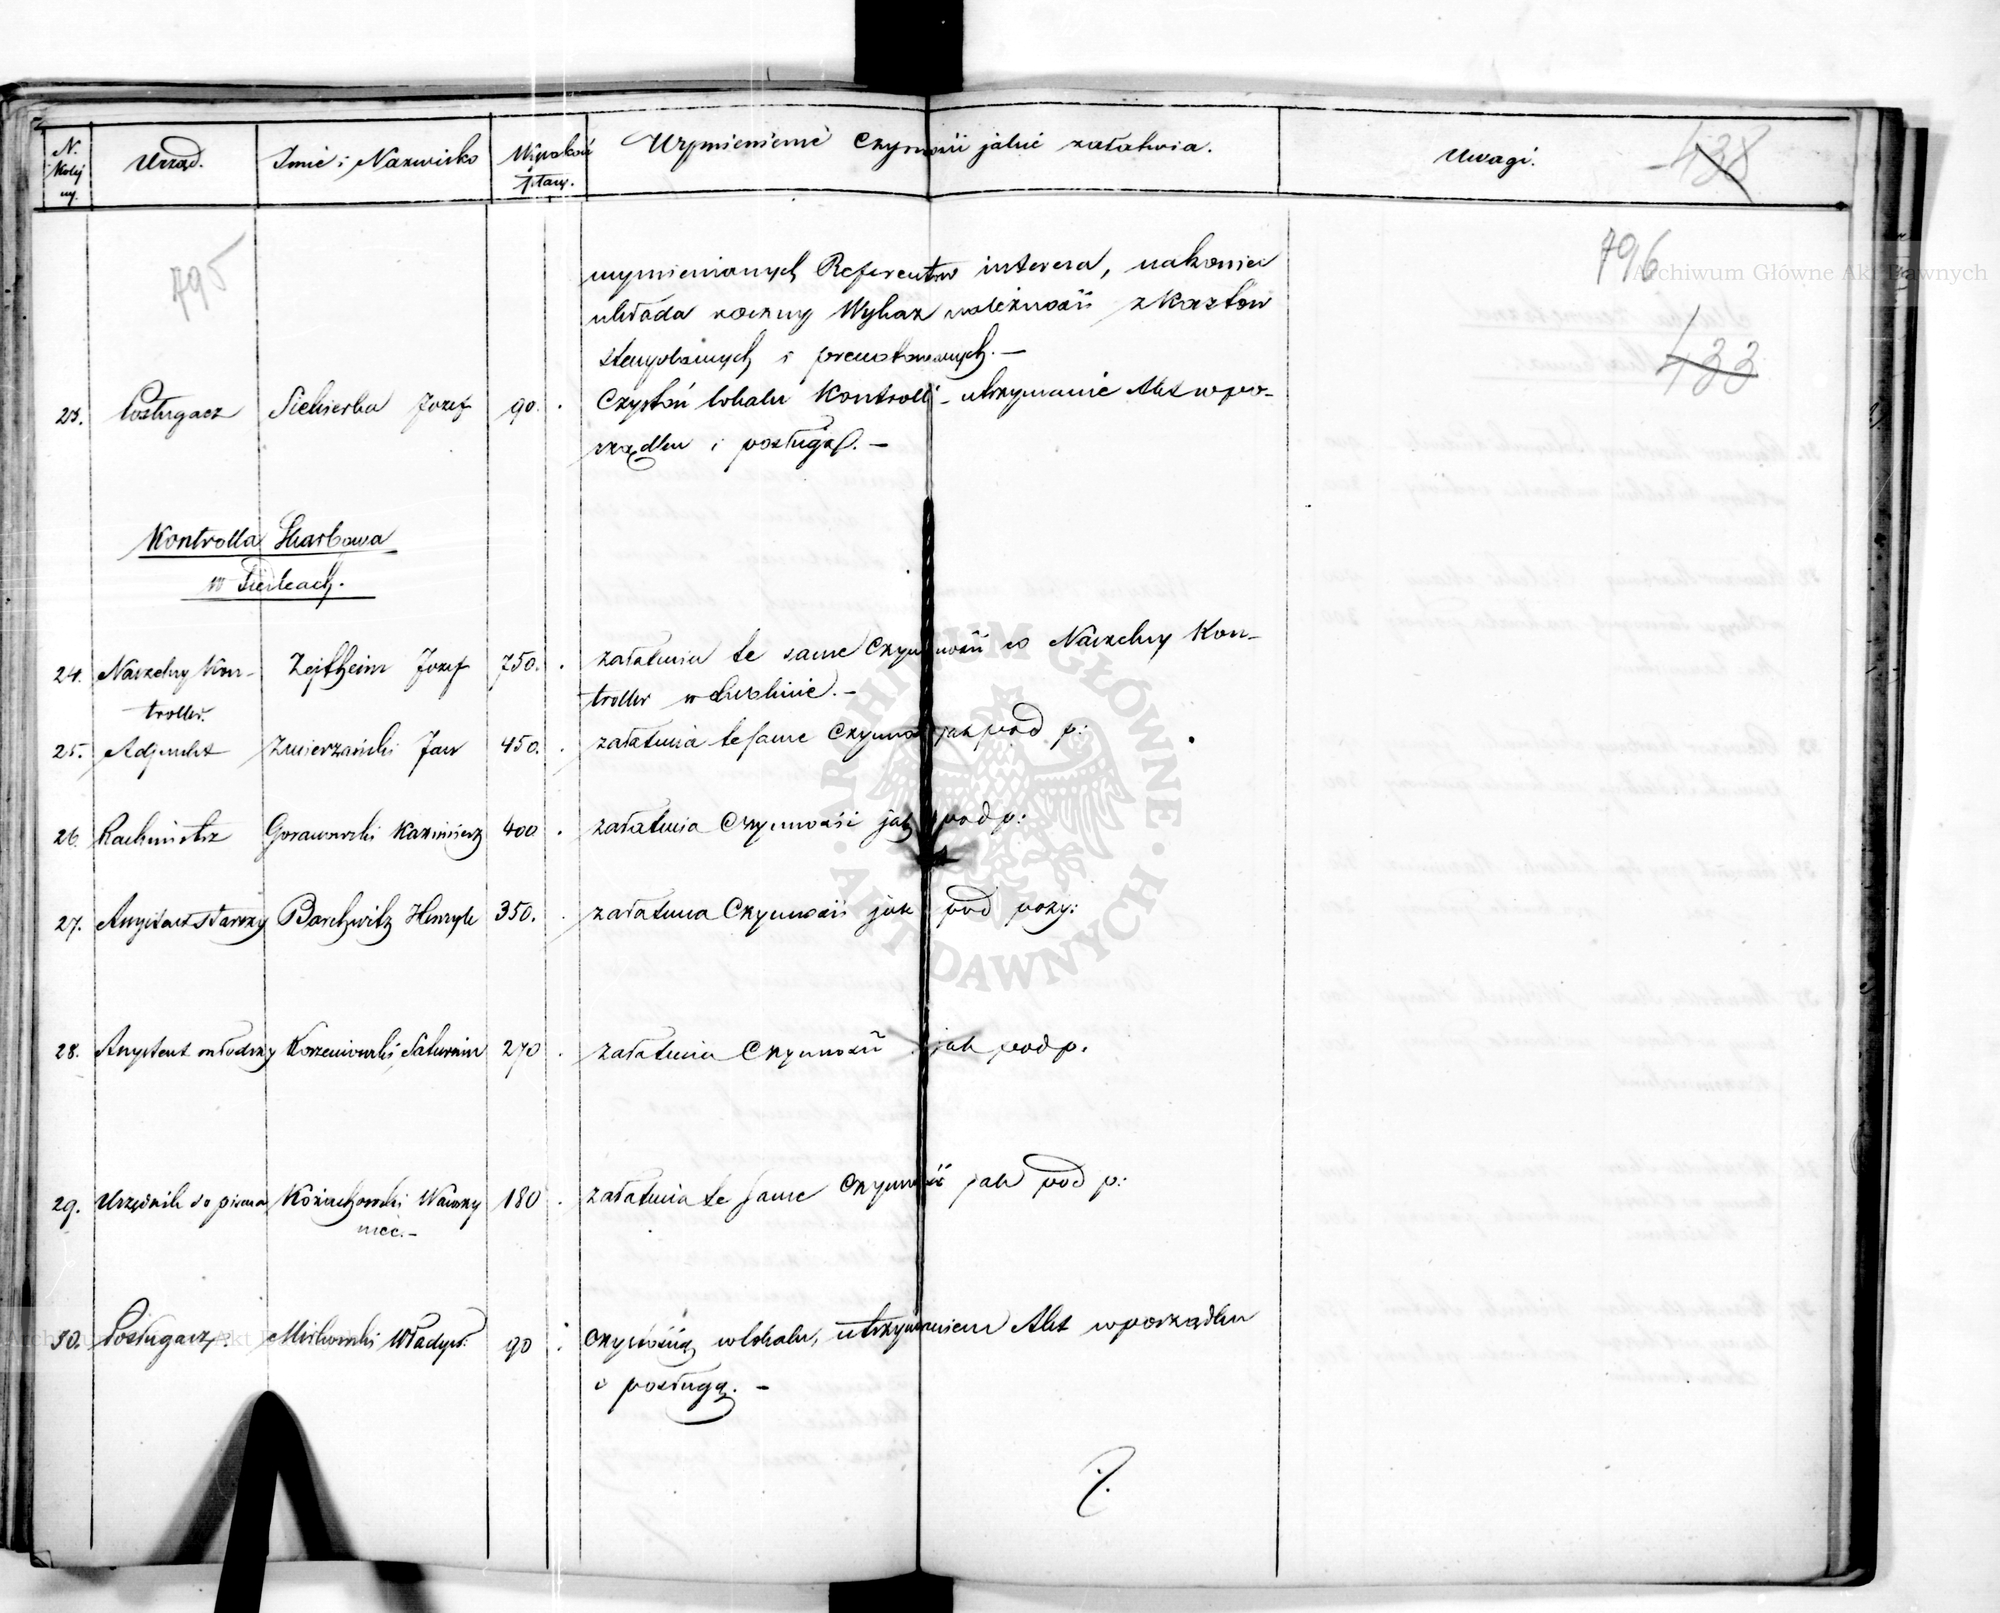 N. Kolej ny.
Urząd.
Imie i Nazwisko
Wysokość płacy.
Wymienienie Czynności jakie załatwia.
Uwagi.
438
795
796
433
wymienionych Referentów interesa, nakoniec
układa roczny Wykaz należności z kosztów
stemplowych i prenotowanych. —
23. Posługacz Siekierka Jozef 90. Czystość lokalu Kontrolli - utrzymanie Akt w po-
rządku i posługa. —
Kontrolla Skarbowa
w Siedlcach.
24. Naczelny Kon- Zejtheim Jozef 750. załatwia te same Czynności co Naczelny Kon-
troller. troller w Lublinie. —
25. Adjunkt Zmierzański Jan 450. załatwia te same Czynności jak pod p:
26. Rachmistrz Gorawski Kazimierz 400 załatwia Czynności jak pod p:
27. Assystent starszy Barchwitz Henryk 350. załatwia Czynności jak pod pozy:
28. Assystent młodszy Korzeniowski Saturnin 270 załatwia Czynności jak pod p.
29. Urzędnik do pisma Koziachowski Wawrzy 180 załatwia te same Czynności jak pod p:
niec. —
30. Posługacz. Miskowski Władysł: 90 Czystością w lokalu, utrzymaniem Akt w porządku
i posługą. —
ARCHIWUM GŁÓWNE AKT DAWNYCH
Archiwum Główne Akt Dawnych